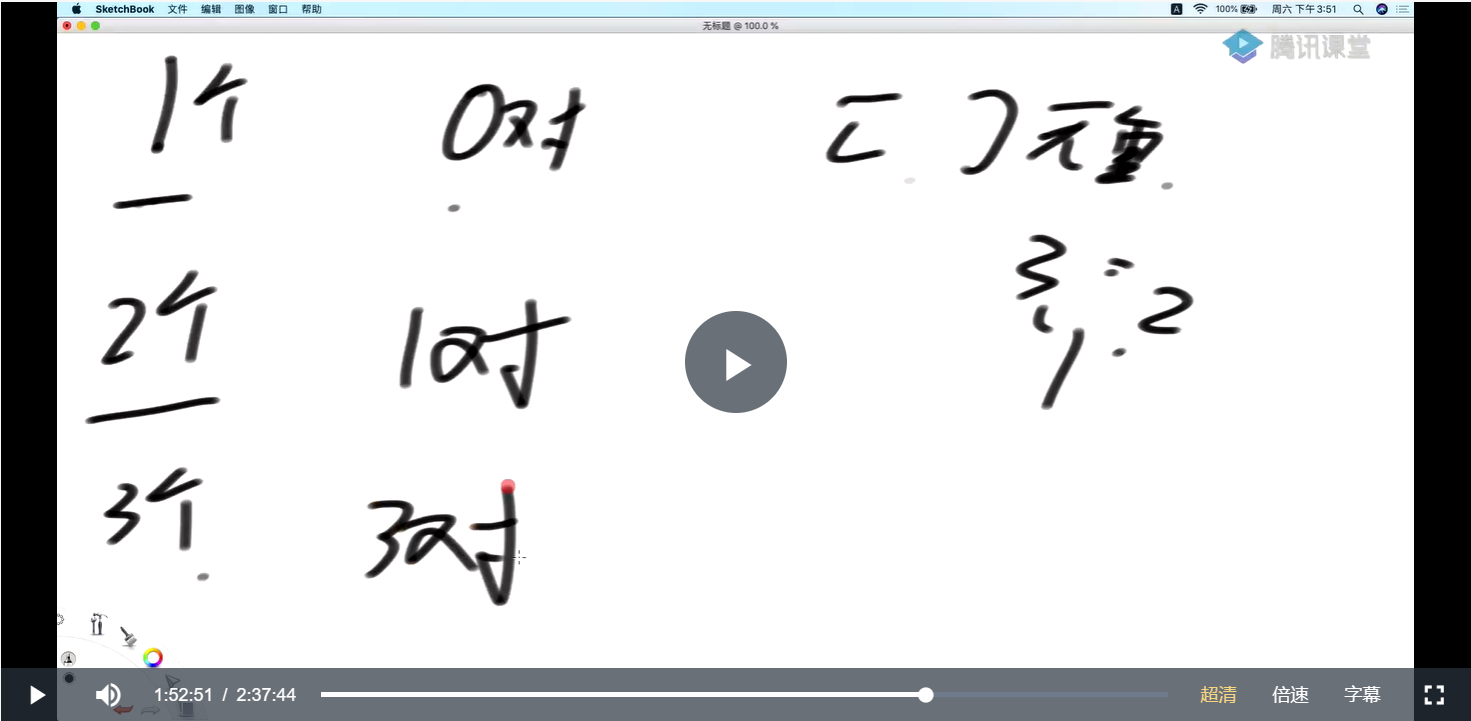 SketchBook 文件 编辑 图像 窗口 帮助 A 100% 周六 下午3:51
无标题 @ 100.0 %
腾讯课堂
1个 0对 [ ] 无重
3 : 2
2个 1对
1
3个 3对
1:52:51 / 2:37:44 超清 倍速 字幕